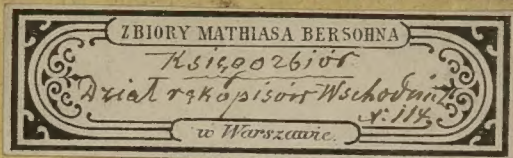 ZBIORY MATHIASA BERSOHNA
Księgozbiór
Dział rękopisów Wschodnich
N. 114
w Warszawie.